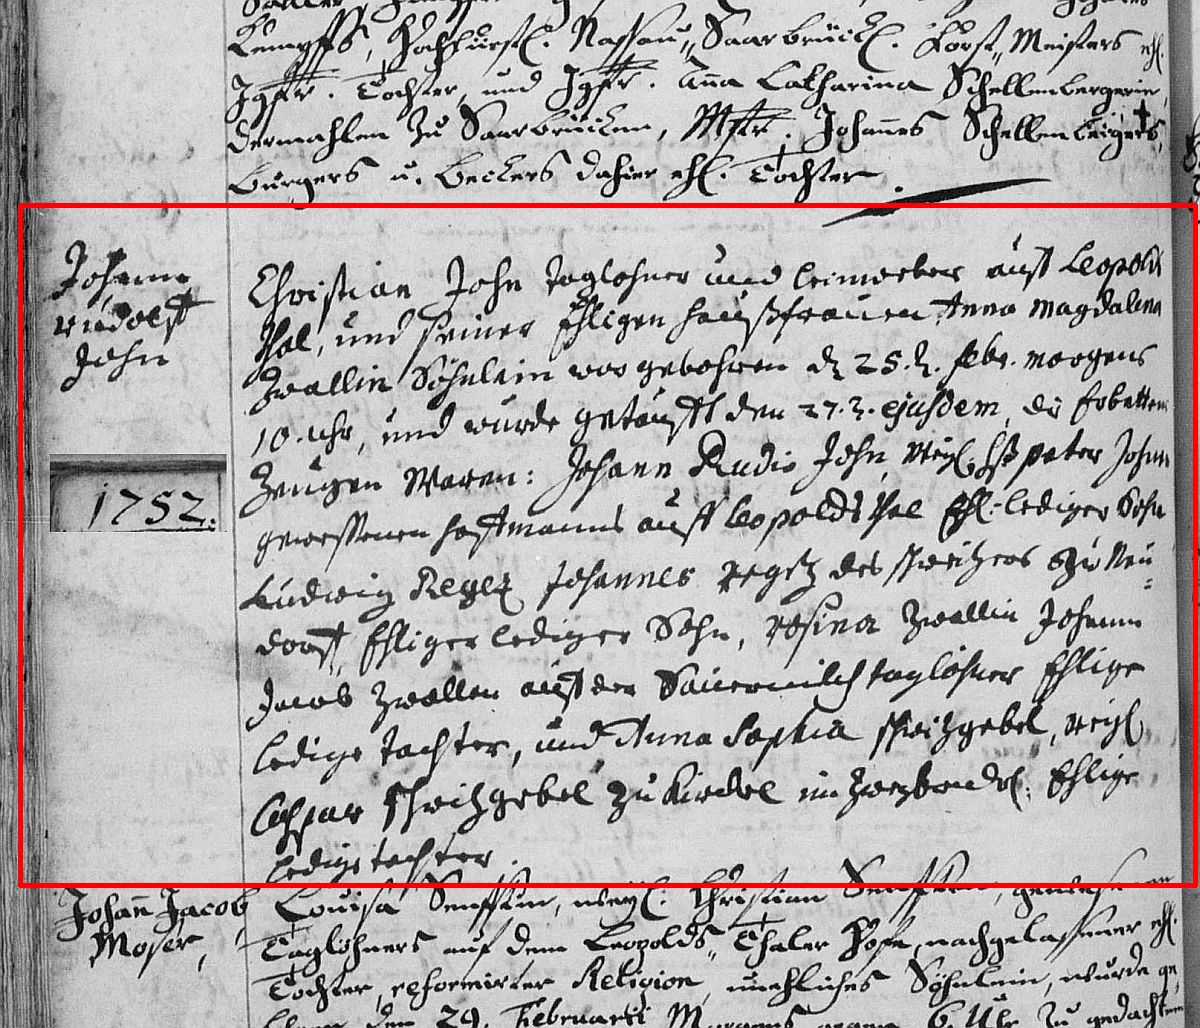 Kempffs, Hochfürstl. Nassau, Saarbrückl. Forst, Meisters ehl.
Jgfr. Tochter, und Jgfr. Anna Catharina Schellenbergerin,
dermahlen zu Saarbrücken, Mstr. Johannes Schellenbergers,
burgers u. beckers dahier ehl. Tochter.
Johann
rudolff
John
1752.
Christian John taglohner und leinweber auff Leopolds
thal, und seiner Ehligen haußfrauen Anna Magdalena
Zwallin Söhnlein war gebohren d 25. t. febr. morgens
10. uhr, und wurde getaufft den 27. t. ejusdem, die Erbettene
Zeugen Waren: Johann Rudi John, weyl. peter John
gewessenen hoffmanns auff Leopoldsthal Ehl. lediger Sohn
Ludwig Johannes des zu Neu=
dorff, Ehliger lediger Sohn, rosina Zwallin Johann
Jacob Zwallen auff der Sauermilch taglöhner Ehlige
ledige tachter, und Anna Sophia weyl.
Caspar zu Kirckel im Zweybrückl. Ehlige
ledige tachter.
Johann Jacob
Moser,
Louisa Senfftin, weyl. Christian Senfften, gewesenen
Taglöhners auf dem Leopolds, Thaler Hofe, nachgelassener ehl.
Tochter, reformirter Religion, unehliches Söhnlein, wurde ge
den 29. Februarii Morgens gegen 6. Uhr zu gedachtem